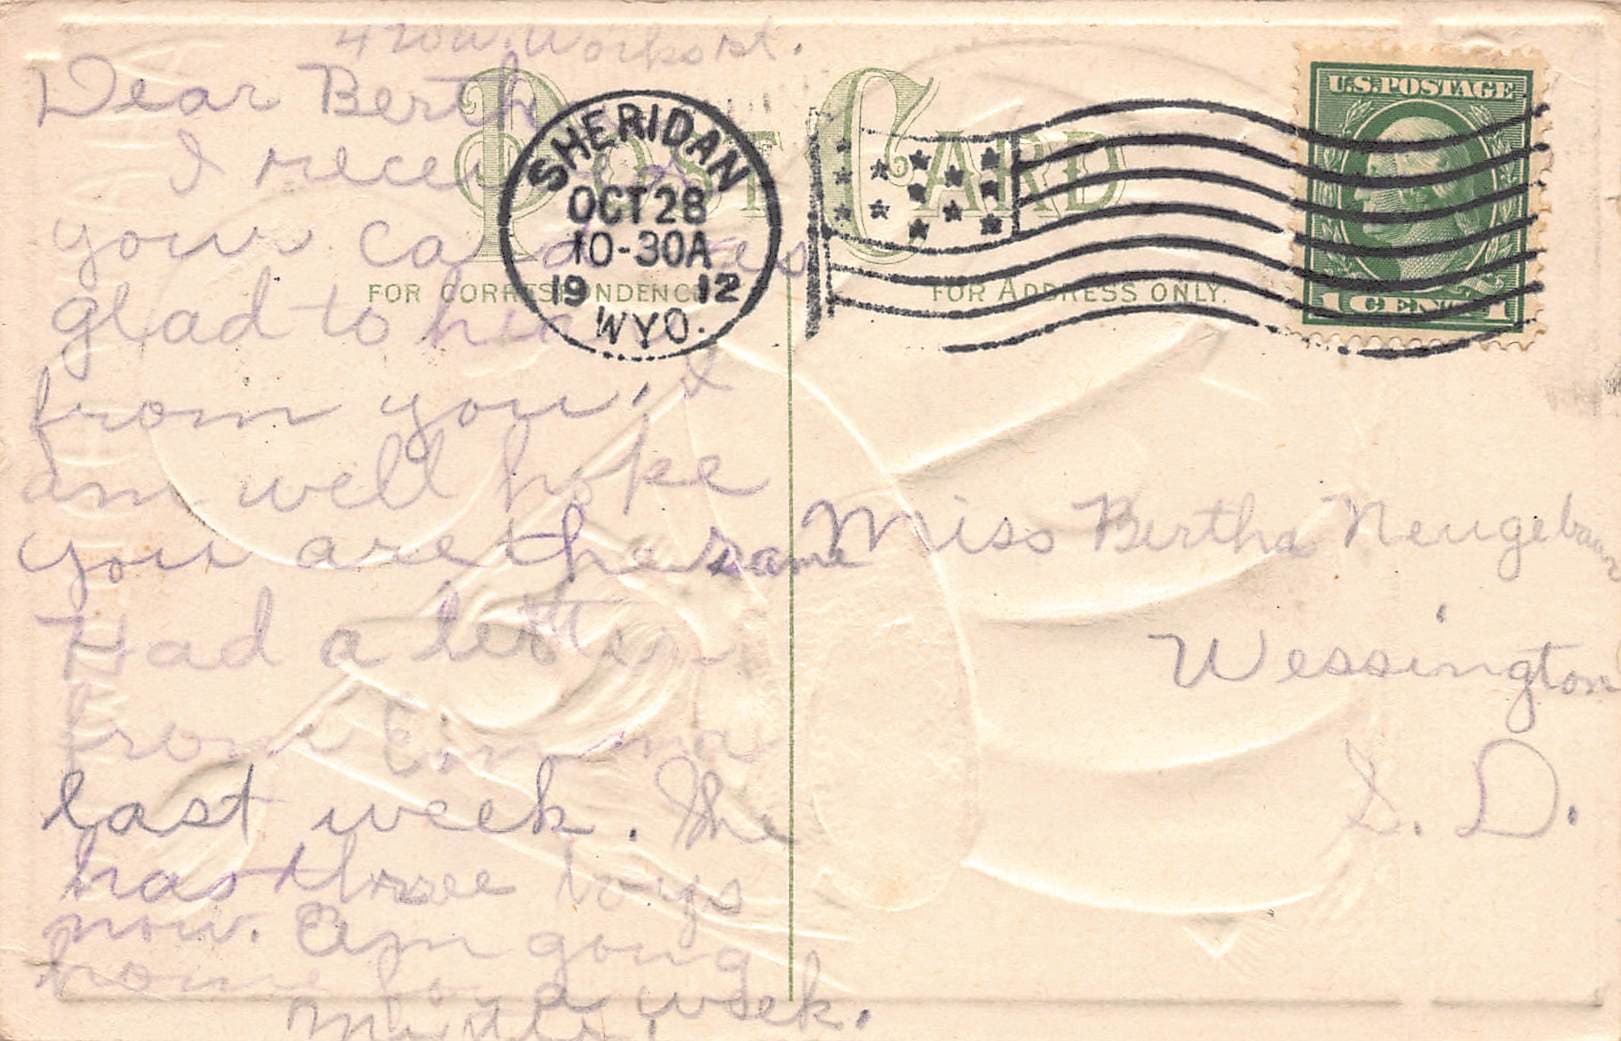 420 W. Works st.
Dear Berth
I recei
your ca
glad to
from you, I
am well hope
you are the same
Had a letter
from Emma
last week. She
has three boys
now. Am going
home for a week.
Myrtle.
POST CARD
FOR CORRESPONDENCE
FOR ADDRESS ONLY.
SHERIDAN
OCT 28
10-30A
19 12
WYO.
U.S. POSTAGE
1 CENT 1
Miss Bertha Neugebauer
Wessington
S. D.